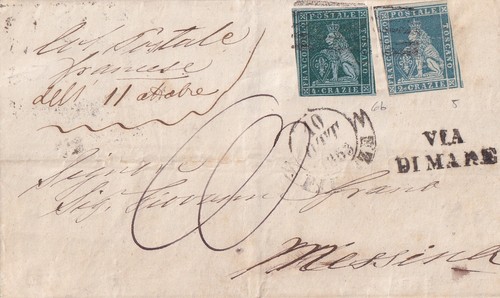 FRANCOBOLLO POSTALE TOSCANO
4 CRAZIE
FRANCOBOLLO POSTALE TOSCANO
2 CRAZIE
Postale
francese
dell 11 ottobre
6b
5
10
VIA
DI MARE
6
Signor
Sig. Giovanni
Messina